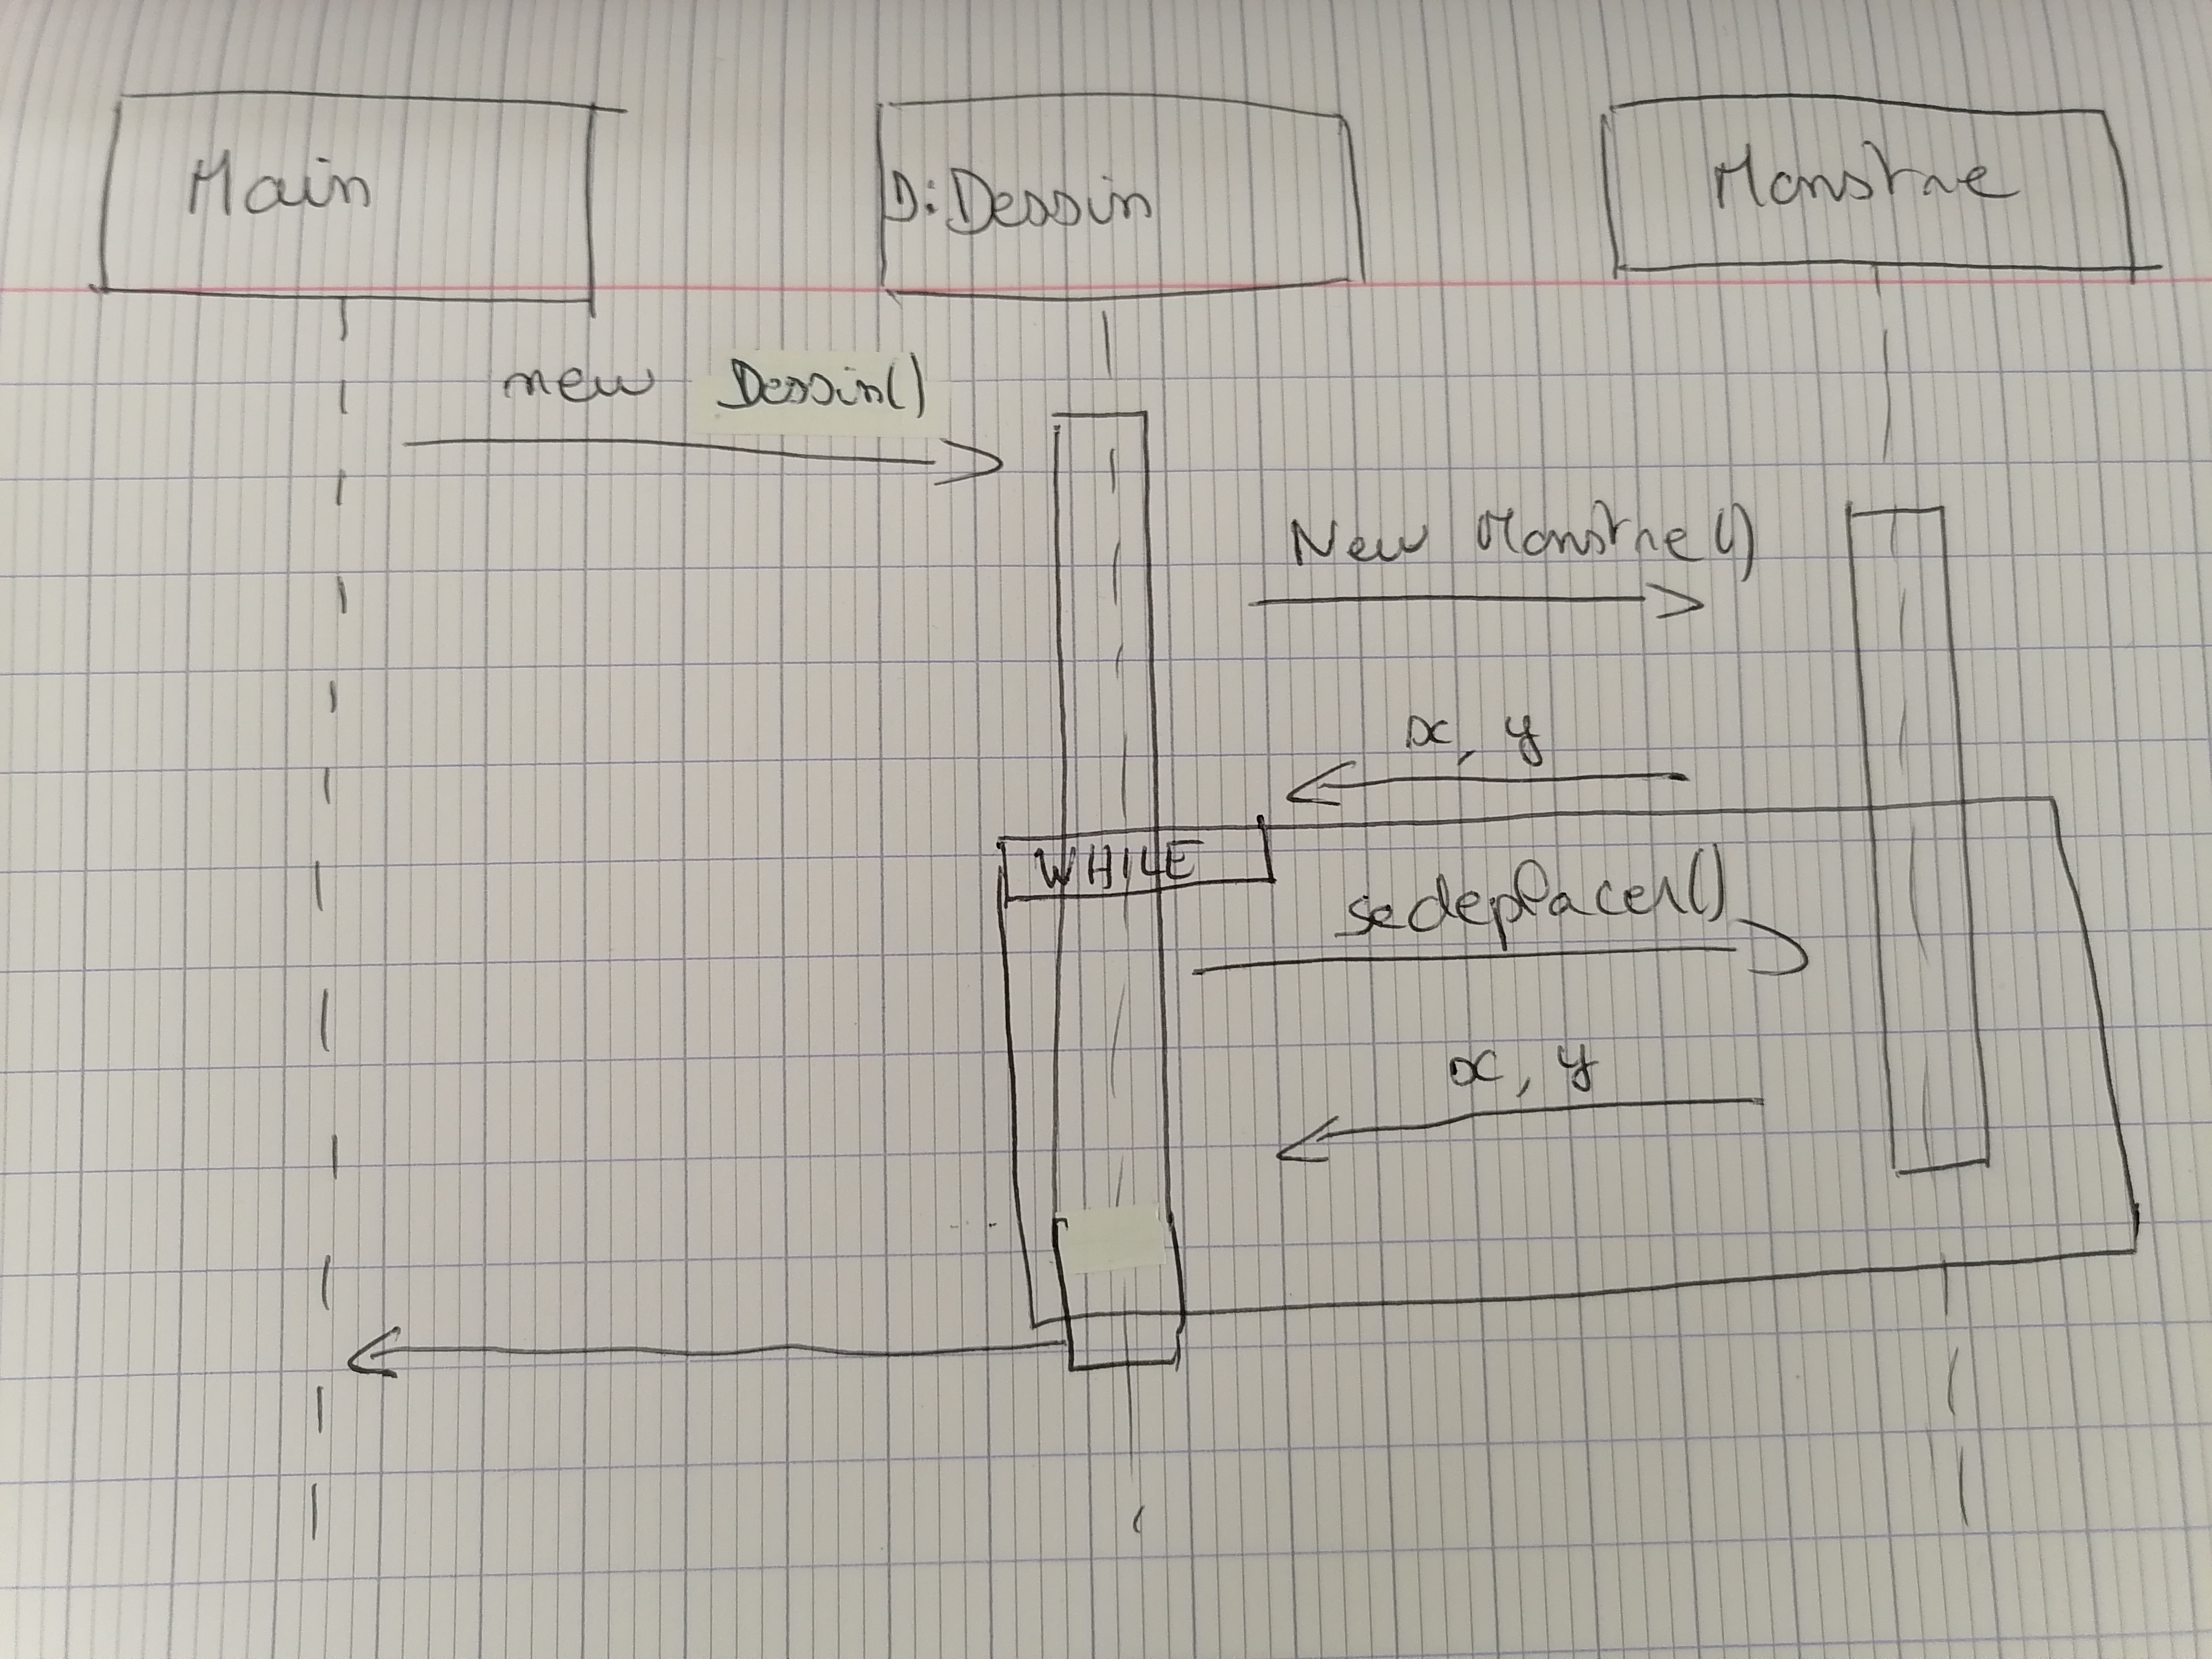 Main
D:Dessin
Monstre
new Dessin()
New Monstre()
x, y
WHILE
sedeplacer()
x, y